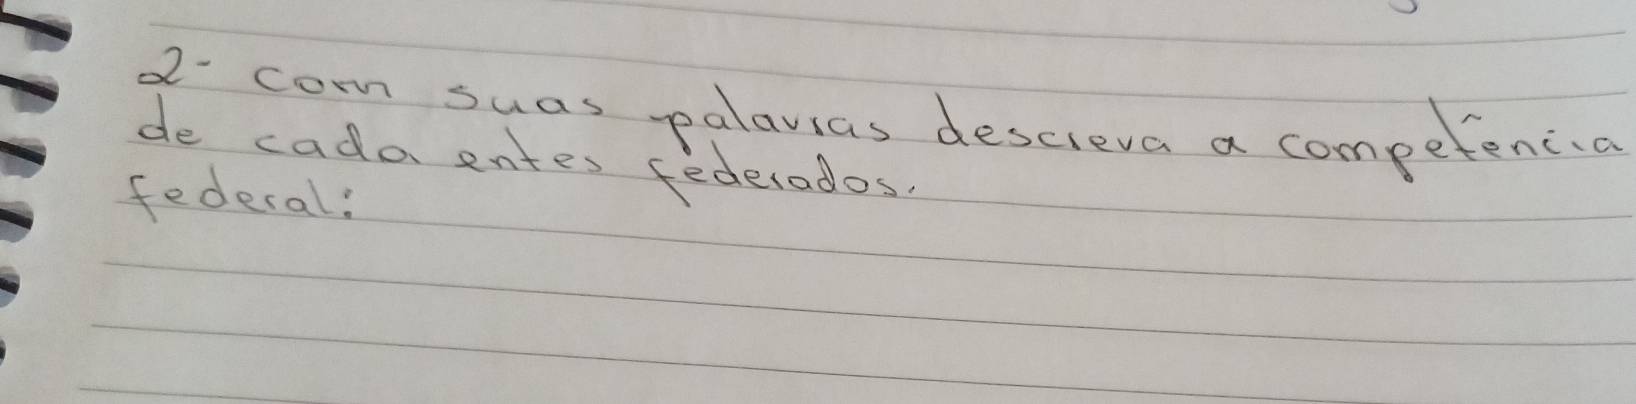 2- com suas palavras descreva a competência
de cada entes federados.
federal: